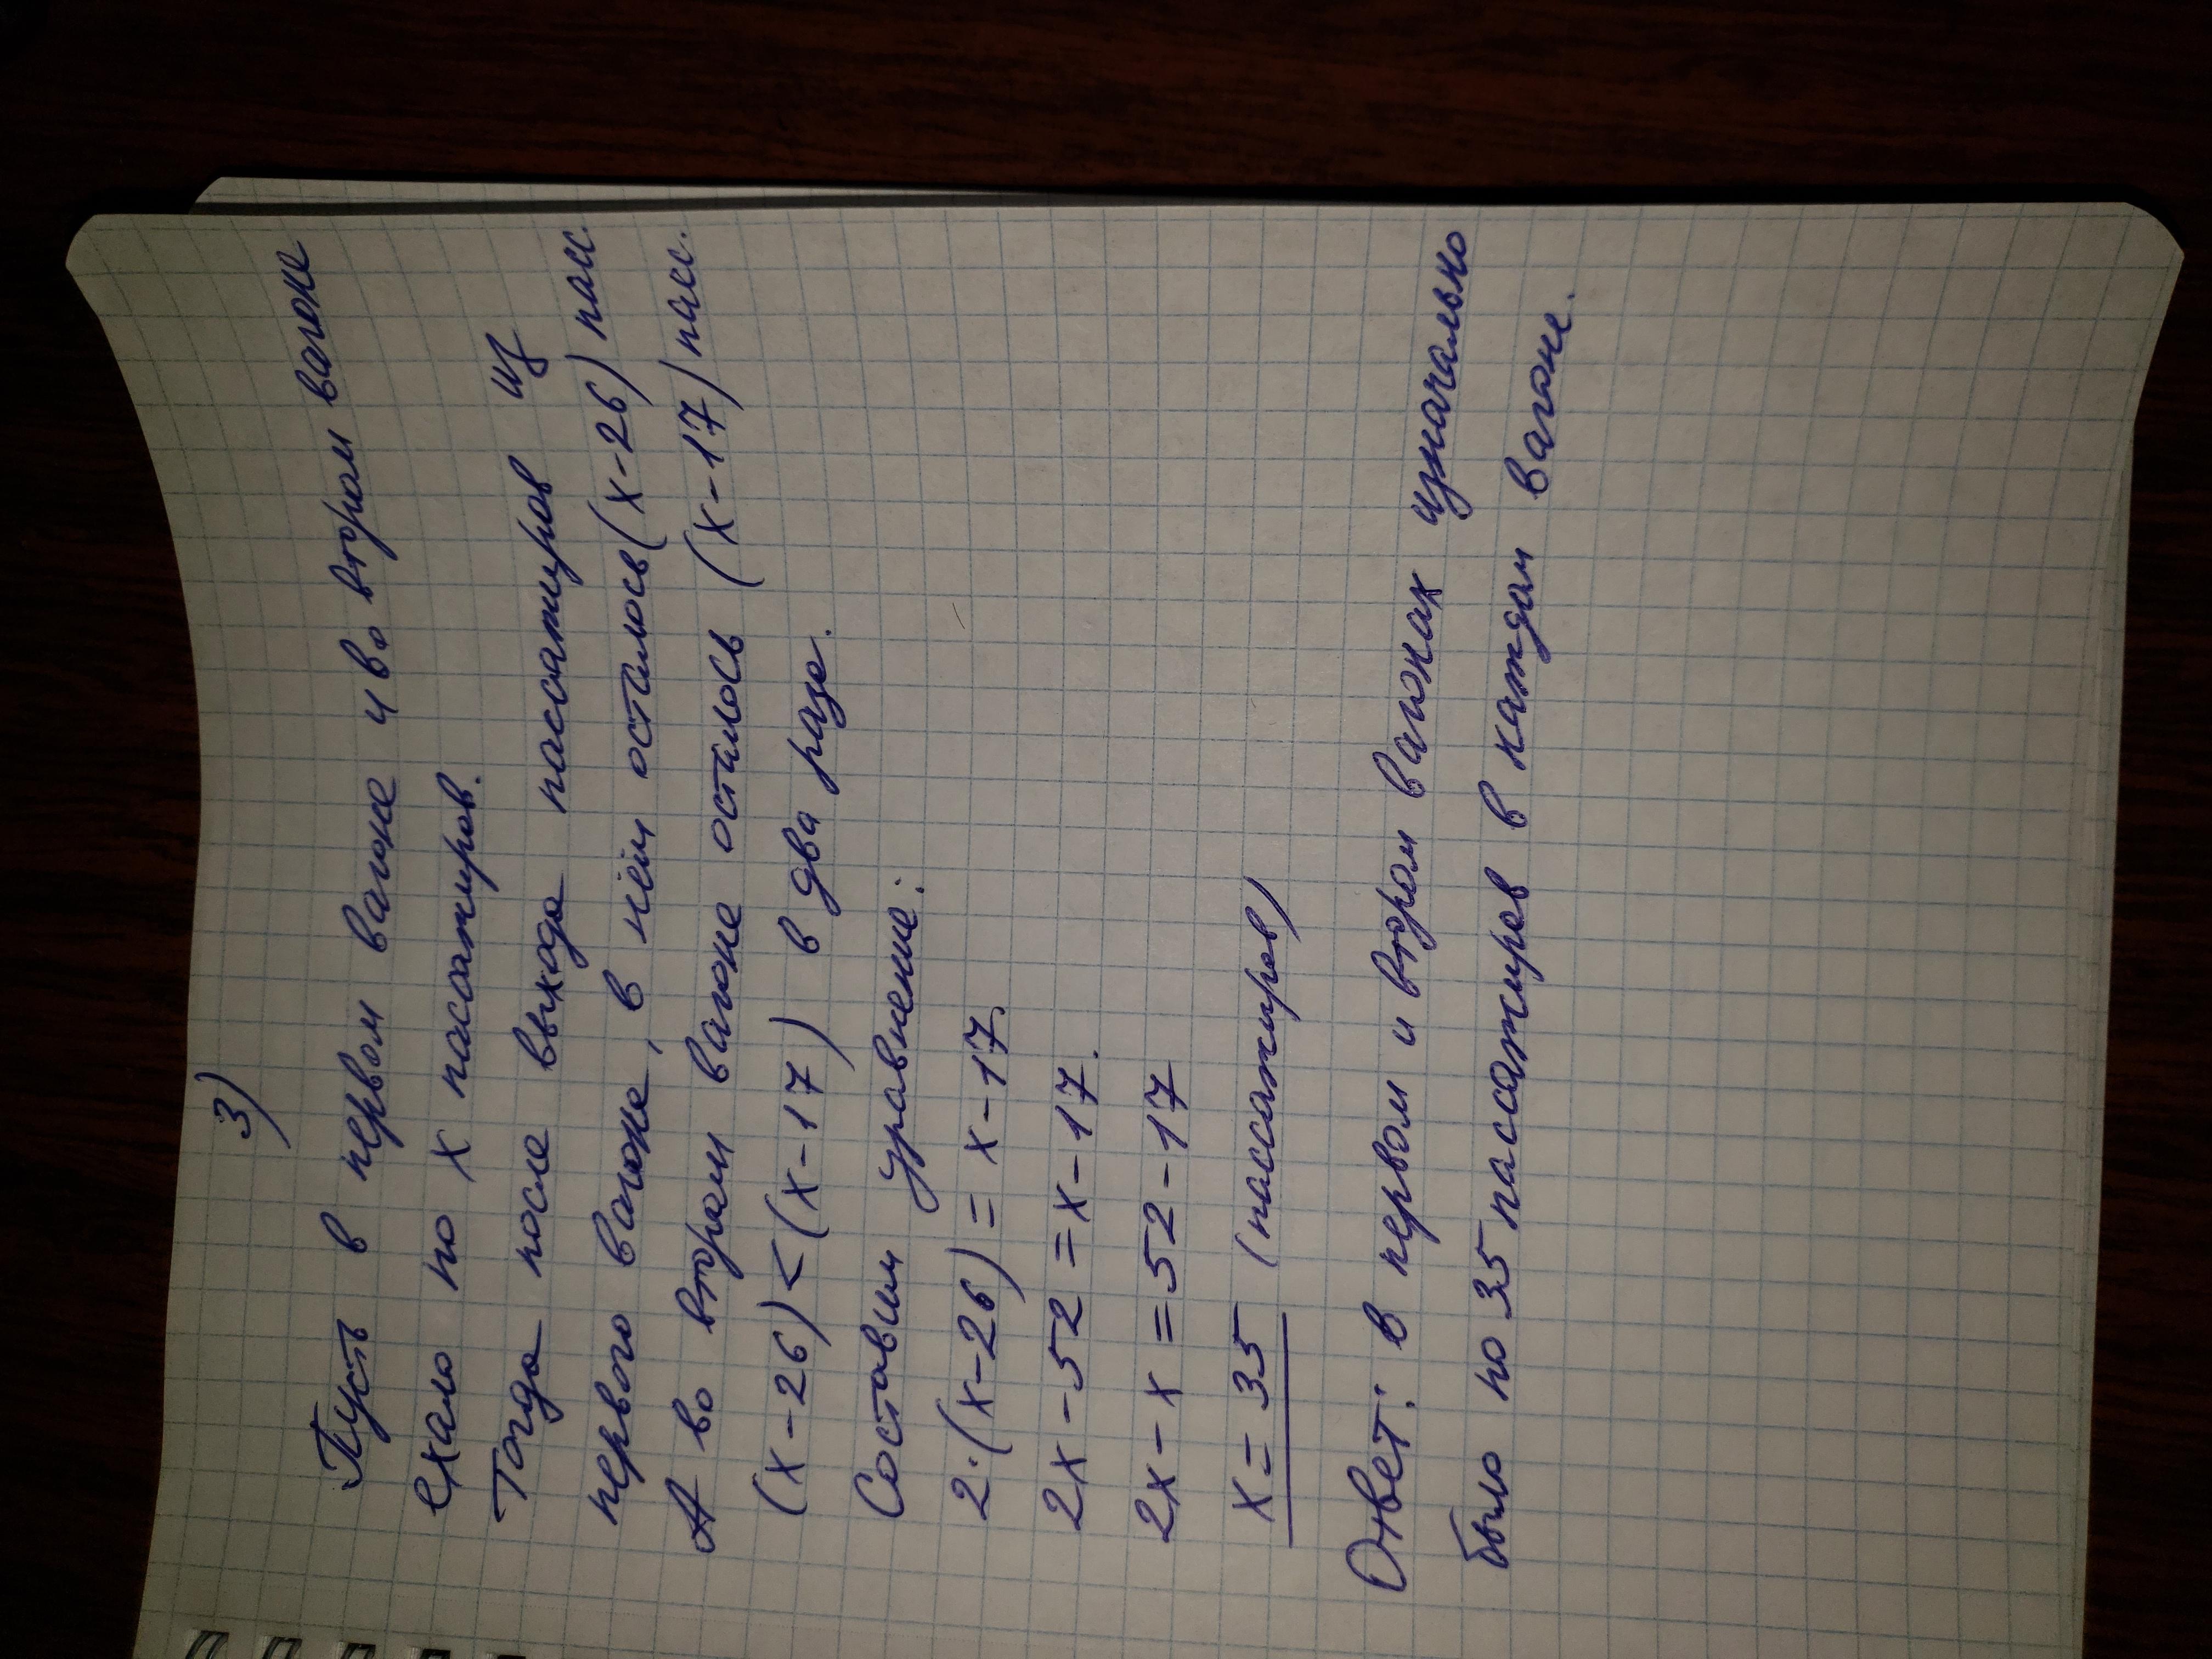 3)
Пусть в первом вагоне и во втором вагоне
ехало по x пассажиров.
Тогда после выхода пассажиров из
первого вагоне, в нём осталось (x-26) пасс.
А во втором вагоне осталось (x-17) пасс.
(x-26) < (x-17) в два раза.
Составим уравнение:
2·(x-26) = x-17.
2x-52 = x-17.
2x-x = 52-17
x = 35 (пассажиров)
Ответ: в первом и втором вагонах изначально
было по 35 пассажиров в каждом вагоне.